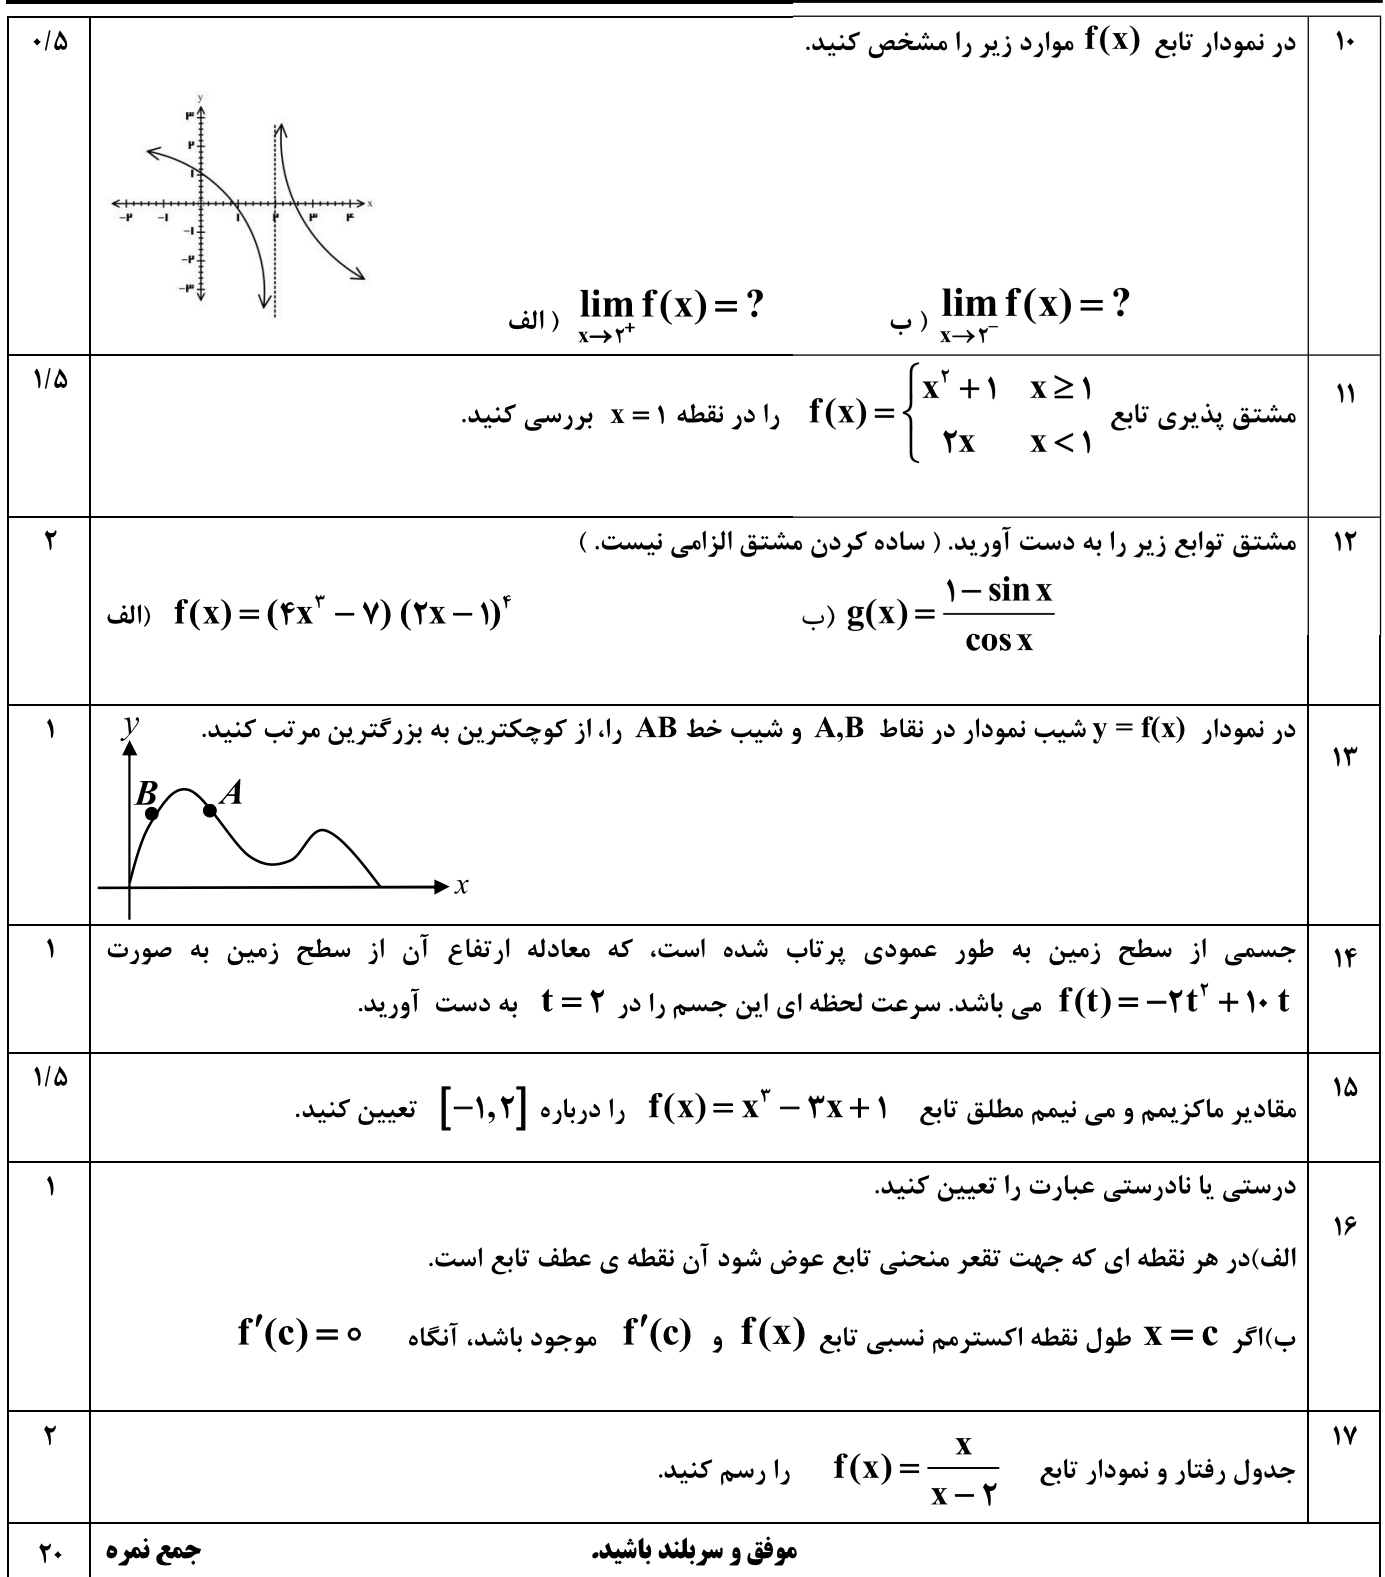 ۱۰ در نمودار تابع f(x) موارد زیر را مشخص کنید. ۰/۵
y
۳
۲
۱
-۲ -۱ ۱ ۲ ۳ ۴ x
-۱
-۲
-۳
الف ) lim f(x) = ? x→۲⁺ ب ) lim f(x) = ? x→۲⁻
۱۱ مشتق پذیری تابع f(x) = { x² + ۱ x ≥ ۱ ۲x x < ۱ را در نقطه x = ۱ بررسی کنید. ۱/۵
۱۲ مشتق توابع زیر را به دست آورید. ( ساده کردن مشتق الزامی نیست. ) ۲
الف) f(x) = (۴x³ − ۷) (۲x − ۱)⁴ ب) g(x) = (۱ − sin x)/(cos x)
۱۳ در نمودار y = f(x) شیب نمودار در نقاط A,B و شیب خط AB را، از کوچکترین به بزرگترین مرتب کنید. ۱
y
B A
x
۱۴ جسمی از سطح زمین به طور عمودی پرتاب شده است، که معادله ارتفاع آن از سطح زمین به صورت ۱
f(t) = −۲t² + ۱۰ t می باشد. سرعت لحظه ای این جسم را در t = ۲ به دست آورید.
۱۵ مقادیر ماکزیمم و می نیمم مطلق تابع f(x) = x³ − ۳x + ۱ را درباره [−۱,۲] تعیین کنید. ۱/۵
۱۶ درستی یا نادرستی عبارت را تعیین کنید. ۱
الف)در هر نقطه ای که جهت تقعر منحنی تابع عوض شود آن نقطه ی عطف تابع است.
ب)اگر x = c طول نقطه اکسترمم نسبی تابع f(x) و f′(c) موجود باشد، آنگاه f′(c) = ۰
۱۷ جدول رفتار و نمودار تابع f(x) = x/(x − ۲) را رسم کنید. ۲
موفق و سربلند باشید. جمع نمره ۲۰